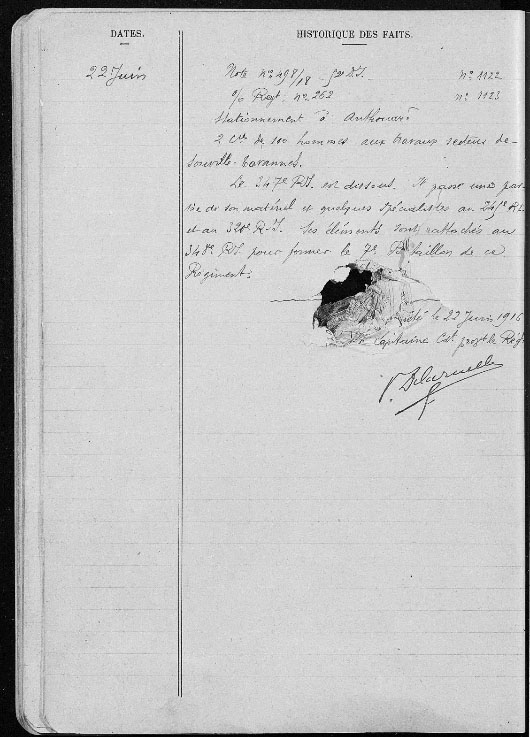 DATES.
HISTORIQUE DES FAITS.
22 Juin
Note nº 498/18 52e D.I. nº 1122
Regt. nº 262 nº 1123
Stationnement à
2 Cies de 100 hommes aux travaux secteur de
Souville-Tavannes.
Le 347e RI. est dissous. Il passe une par
tie de son matériel et quelques spécialistes au 245e R.I.
et au 320e R.I. Ses éléments sont rattachés au
348e RI. pour former le 7e Bataillon de ce
Régiment.
le 22 Juin 1916
Le Capitaine Ct provt le Régt